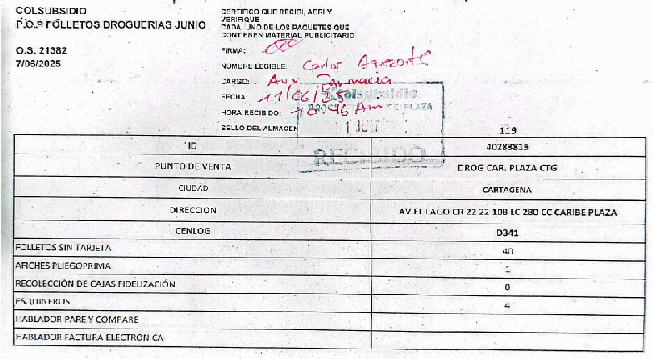 COLSUBSIDIO
P.O.P FOLLETOS DROGUERIAS JUNIO
O.S. 21382
7/06/2025
CERTIFICO QUE RECIBI, ABRI Y
VERIFIQUE
CADA UNO DE LOS PAQUETES QUE
CONTIENEN MATERIAL PUBLICITARIO
FIRMA:
NOMBRE LEGIBLE: Carlos
CARGO: Aux Farmacia
FECHA: 11/06/25
HORA RECIBIDO: 10:46 Am
SELLO DEL ALMACEN
Colsubsidio
PLAZA
RECIBIDO
119
ID 40288815
PUNTO DE VENTA DROG CAR. PLAZA CTG
CIUDAD CARTAGENA
DIRECCION AV EL LAGO CR 22 22 108 LC 280 CC CARIBE PLAZA
CENLOG D341
FOLLETOS SIN TARJETA 40
AFICHES PLIEGOPRIMA 1
RECOLECCIÓN DE CAJAS FIDELIZACIÓN 0
ESQUINEROS 4
HABLADOR PARE Y COMPARE
HABLADOR FACTURA ELECTRÓNICA